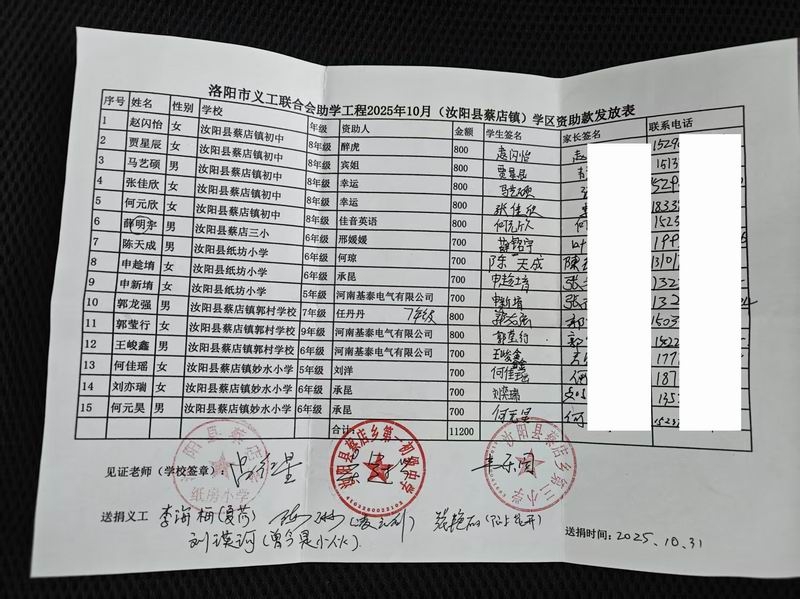 洛阳市义工联合会助学工程2025年10月（汝阳县蔡店镇）学区资助款发放表
序号 姓名 性别 学校 年级 资助人 金额 学生签名 家长签名 联系电话
1 赵闪怡 女 汝阳县蔡店镇初中 8年级 醉虎 800 赵闪怡 赵 1529
2 贾星辰 女 汝阳县蔡店镇初中 8年级 宾姐 800 贾星辰 1513
3 马艺硕 男 汝阳县蔡店镇初中 8年级 幸运 800 马艺硕 529
4 张佳欣 女 汝阳县蔡店镇初中 8年级 幸运 800 张佳欣 1833
5 何元欣 女 汝阳县蔡店镇初中 8年级 佳音英语 800 何元欣 何 1523
6 薛明宇 男 汝阳县蔡店三小 6年级 邢媛媛 700 薛铭宇 199
7 陈天成 男 汝阳县纸坊小学 6年级 何琼 700 陈天成 陈 1310
8 申趁堉 女 汝阳县纸坊小学 6年级 承昆 700 申趁堉 张 132
9 申新堉 女 汝阳县纸坊小学 5年级 河南基泰电气有限公司 700 申新堉 张 132
10 郭龙强 男 汝阳县蔡店镇郭村学校 7年级 任丹丹 7年级 800 郭 1503
11 郭莹行 女 汝阳县蔡店镇郭村学校 9年级 河南基泰电气有限公司 800 郭莹行 1522
12 王峻鑫 男 汝阳县蔡店镇郭村学校 6年级 河南基泰电气有限公司 700 王峻鑫 177
13 何佳瑶 女 汝阳县蔡店镇妙水小学 5年级 刘洋 700 何佳瑶 何 187
14 刘亦瑞 女 汝阳县蔡店镇妙水小学 6年级 承昆 700 刘奕瑞 135
15 何元昊 男 汝阳县蔡店镇妙水小学 6年级 承昆 700 何元昊 何
合计： 11200
见证老师（学校签章）：
汝阳县蔡店 纸房小学
汝阳县蔡店乡第一初级中学
汝阳县蔡店乡第三小学
送捐义工 李海梅(夏荷)
刘瑛珂(曾今是小伙)
送捐时间：2025.10.31